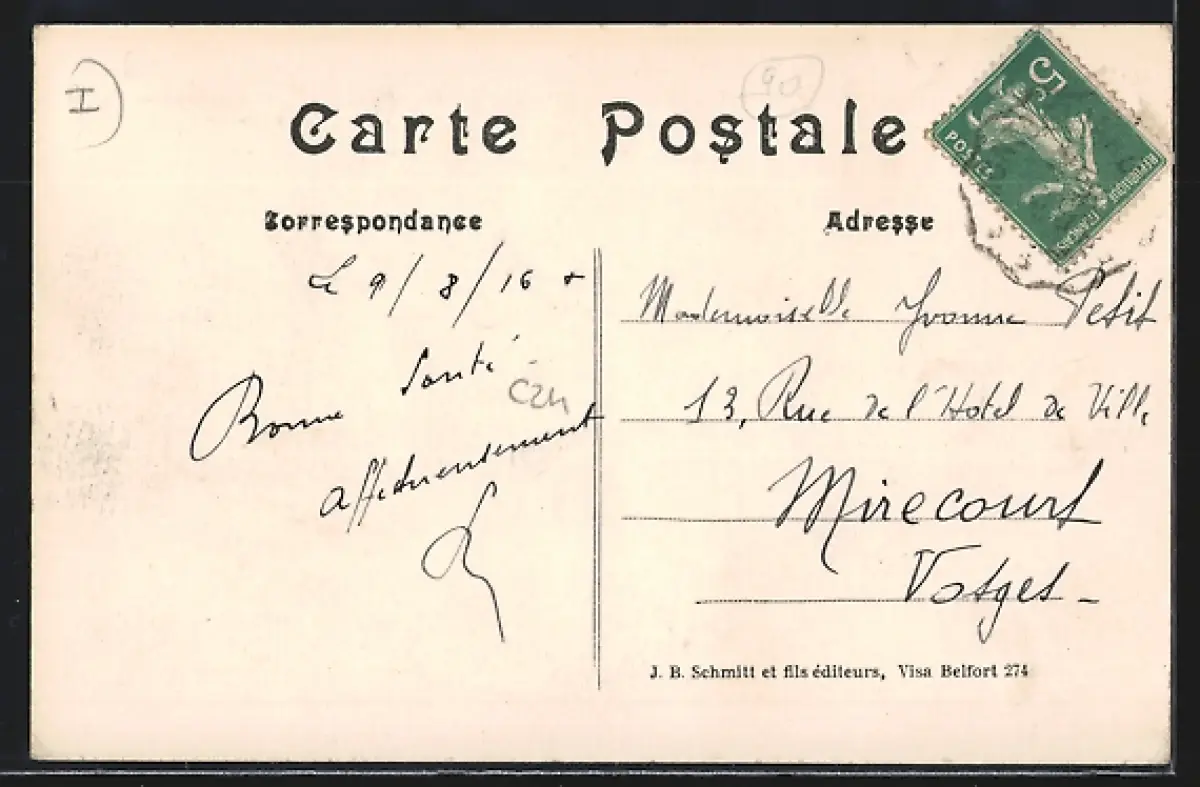 I)
90
Carte Postale
5c
POSTES
REPUBLIQUE FRANÇAISE
Correspondance
Adresse
Le 9/8/16
Bonne Santé
affectueusement
Mademoiselle Yvonne Petit
13, Rue de l'Hotel de Ville
Mirecourt
Vosges -
J. B. Schmitt et fils éditeurs, Visa Belfort 274